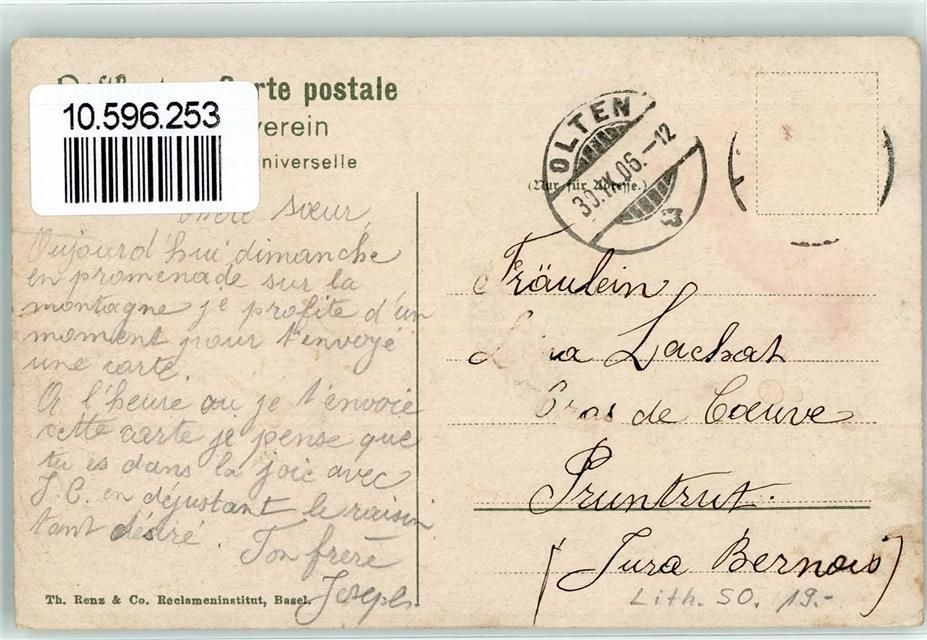 Carte postale
10.596.253
verein
universelle
OLTEN
30.IX.06.-12
(Nur für Adresse.)
Chère Sœur,
Oujourd'hui dimanche
en promenade sur la
montagne je profite d'un
moment pour t'envoyé
une carte.
A l'heure ou je t'envoie
cette carte je pense que
tu es dans la joie avec
J. C. en déjustant le raisin
tant désiré.
Ton frère
Joseph
Fräulein
Lachat
Cras de Cœuve
Pruntrut.
(Jura Bernois)
Lith. SO. 19.-
Th. Renz & Co. Reclameninstitut, Basel.